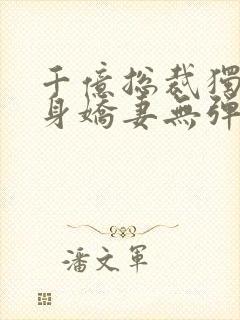 千億総裁獨
身嬌妻無彈
潘文軍